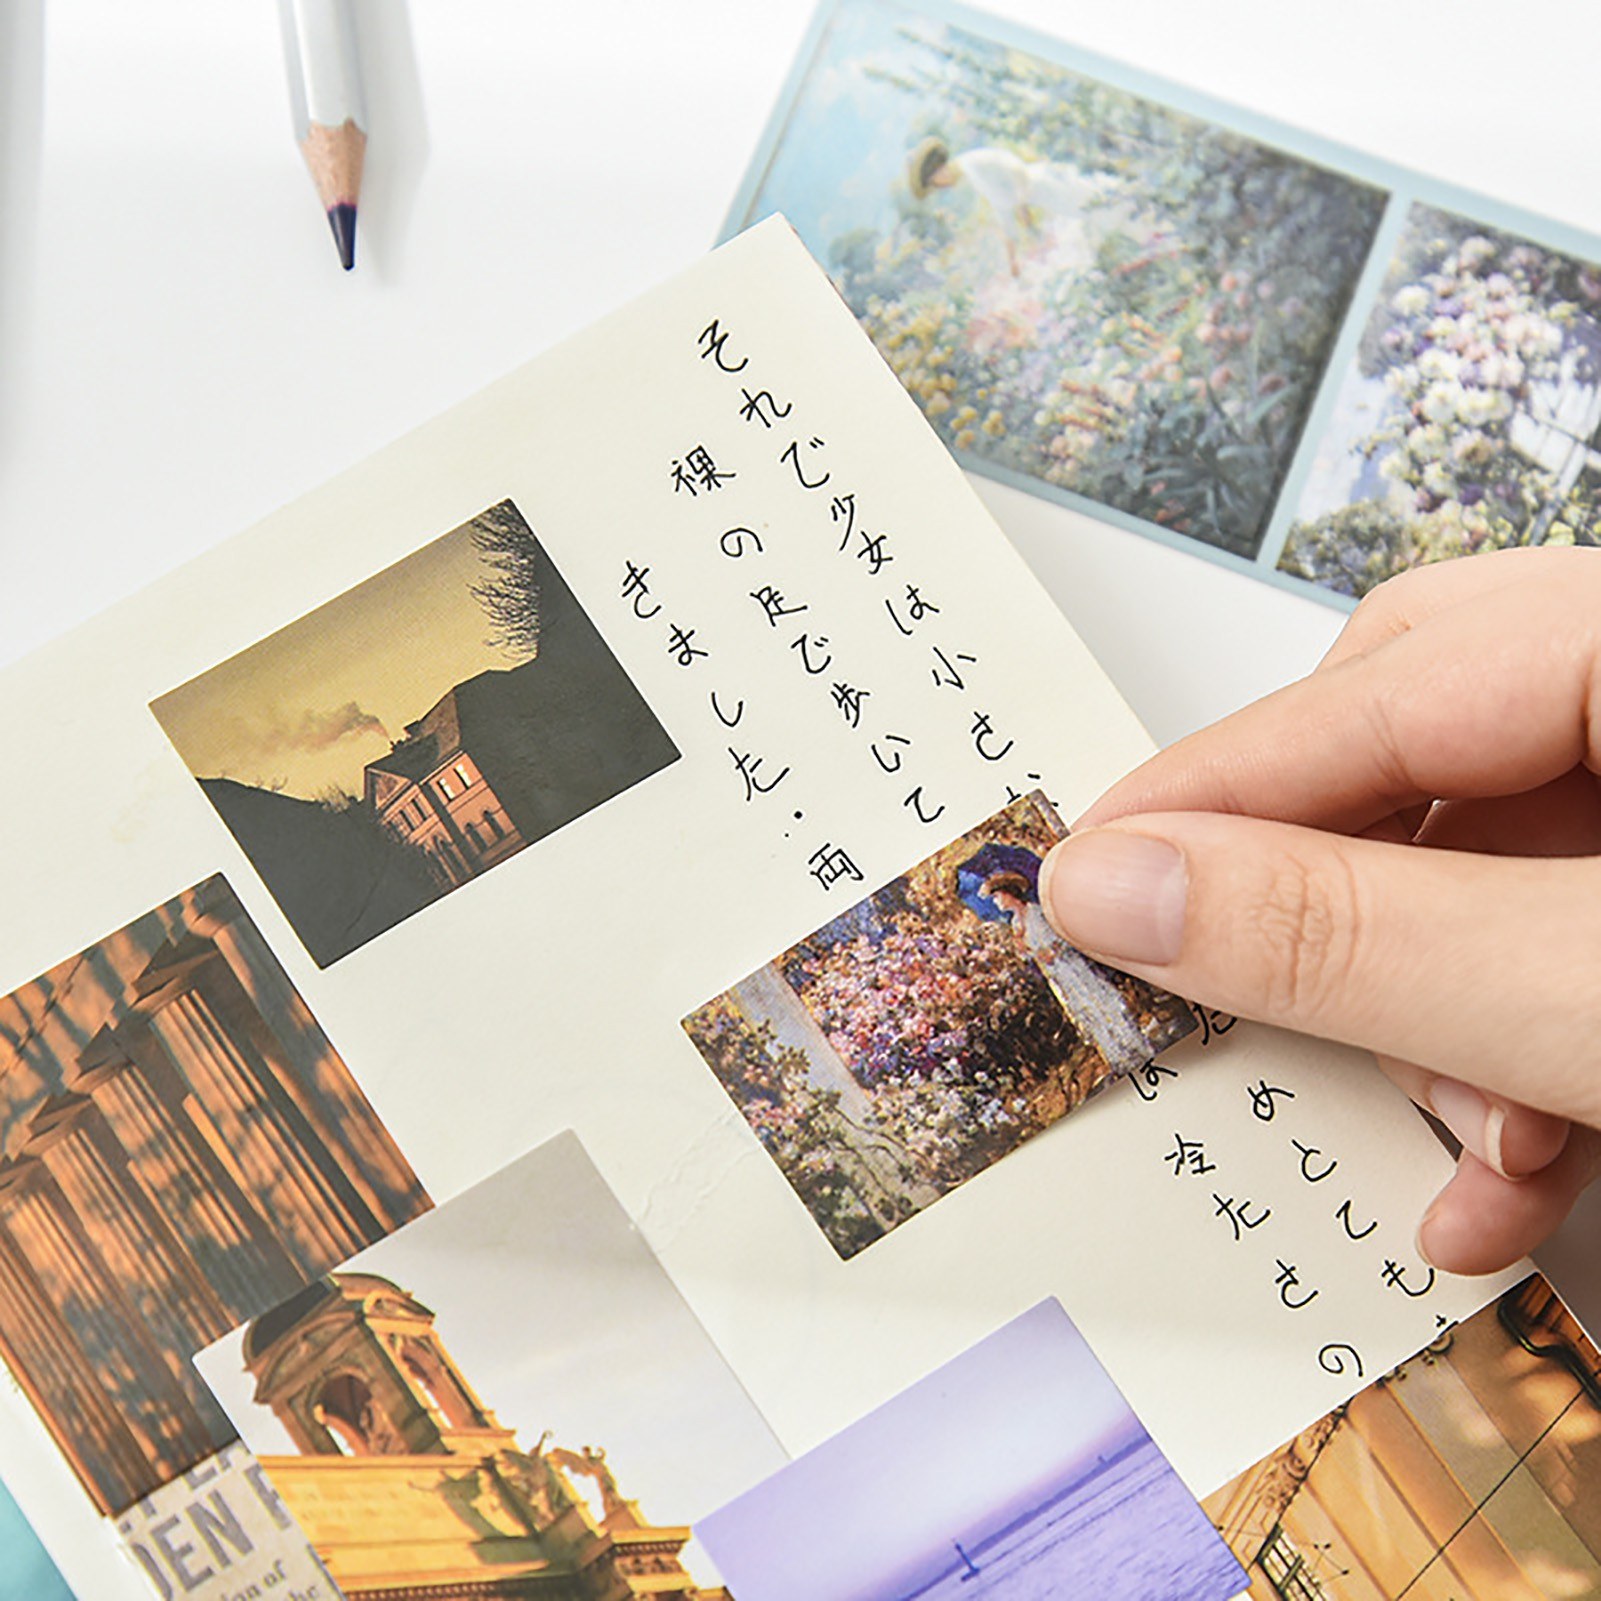 それで少女は小さ ためとても
裸の足で歩いて は冷たさの
きました.両
DEN
of